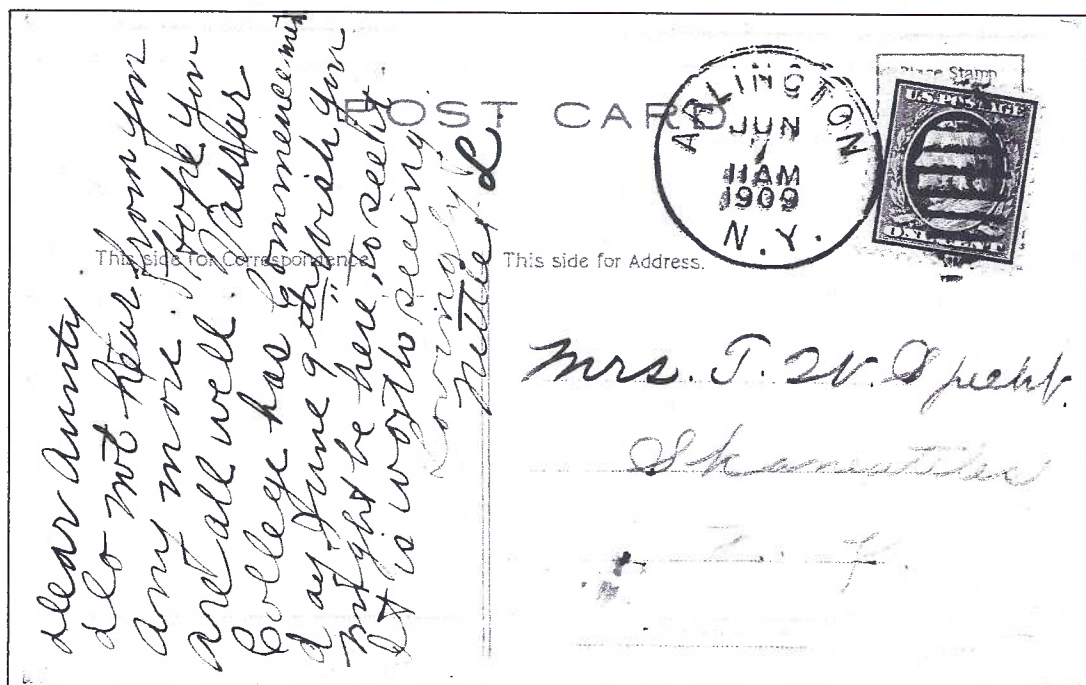 POST CARD
Place Stamp
U.S. POSTAGE
ARLINGTON
JUN
11AM
1909
N.Y.
This side for Correspondence.
This side for Address.
dear Aunty
do not hear from you
any more. hope you
are all well Vassar
College has Commencement
day June 9 th wish you
might be here, to see it
It is worth seeing
Lovingly
Nettie. L.
Mrs. T. W. Specht.
Skaneateles
N. Y.